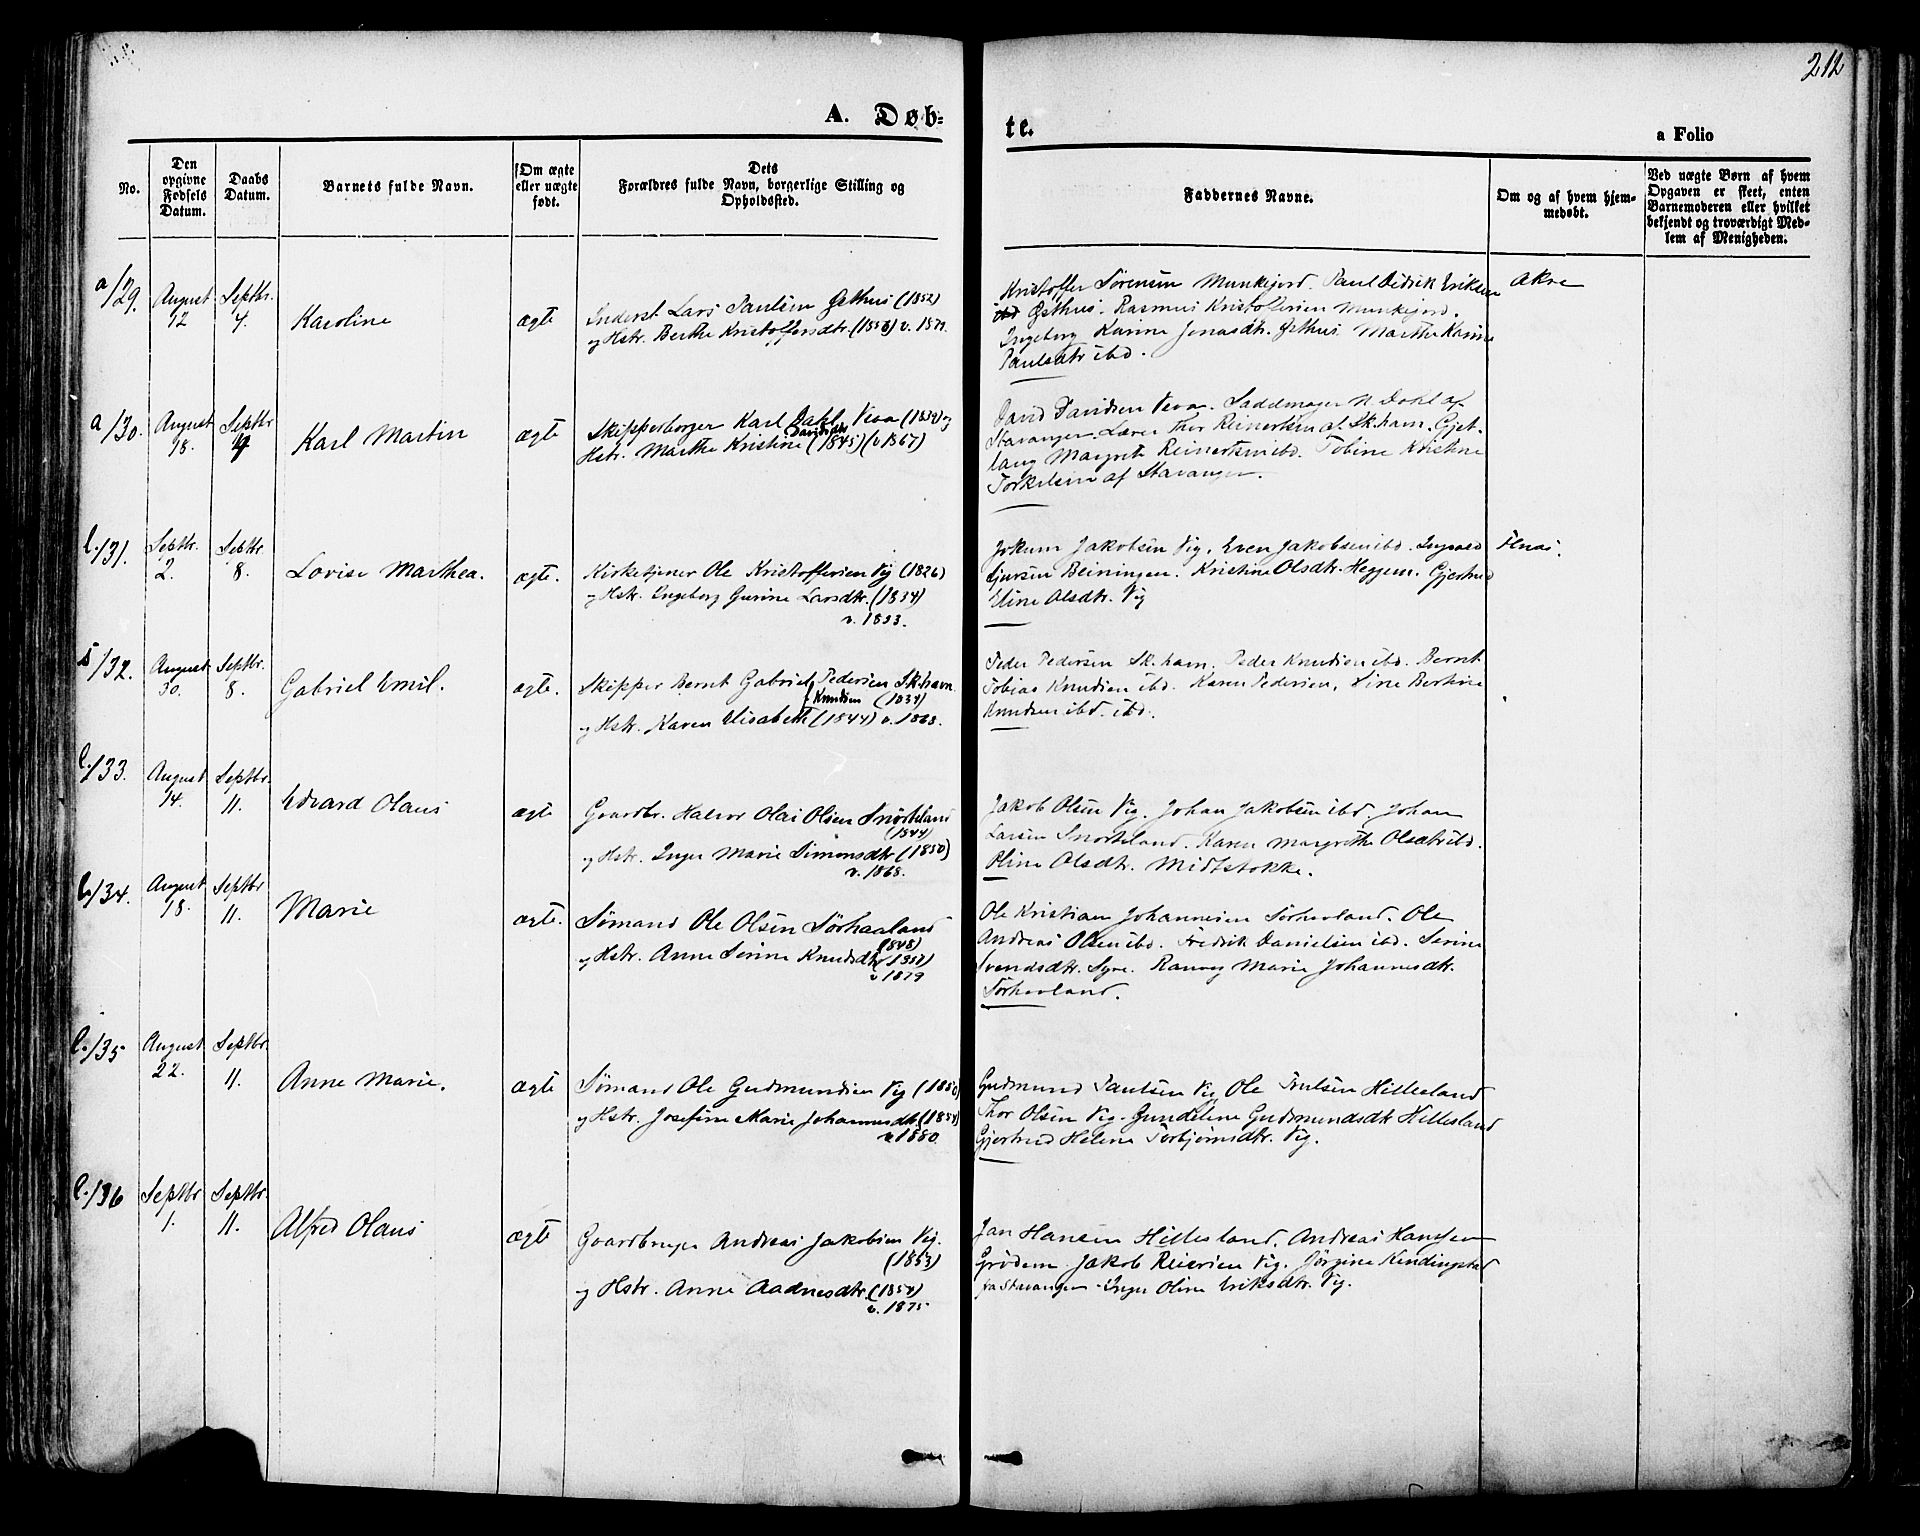 212
A. Døb-
te.
a Folio
No.
Den opgivne Fødsels Datum.
Daabs Datum.
Barnets fulde Navn.
Om ægte eller uægte født.
Dets
Forældres fulde Navn, borgerlige Stilling og
Opholdssted.
Faddernes Navne.
Om og af hvem hjem-
medøbt.
Ved uægte Børn af hvem
Opgaven er skeet, enten
Barnemoderen eller hvilket
bekjendt og troværdigt Med-
lem af Menigheden.
a/29.
August 12
Septbr. 4.
Karoline
ægte
Inderst Lars Paulsen Østhus (1852)
og Hstr. Berthe Kristoffersdtr.
Kristoffer Sørensen Munkejord. Paul Didrik Eriksen
Østhus. Rasmus Kristoffersen Munkejord.
Ingeborg Karine Jonasdtr. Østhus. Marthe Karine
Paulsdtr ibd.
Akre
a/30.
August 18.
Septbr 4
Karl Martin
ægte
Skipperborger Karl Dahl Veva (1839) og
Hstr. Marthe Kristine Davidsdtr (1845) (v 1867)
David Davidsen Veva. Saddmager N. Dahl af
Stavanger. Lærer Thor Reinertsen af Sk.havn. Gjet-
Margrete Reinertsen ibd. Tobine Kristine
Torkelsen af Stavanger.
l./31.
Septbr. 2.
Septbr. 8.
Lovise Marthea.
ægte.
Kirketjener Ole Kristoffersen Vig (1826)
og Hstr. Ingeborg Gurine Larsdtr. (1834)
v. 1853.
Jokum Jakobsen Vig. Even Jakobsen ibd.
Beiningen. Kristine Olsdtr. Heggem. Gjertrud
Eline Olsdtr. Vig
s/32.
August 30.
Septbr. 8.
Gabriel Emil.
ægte.
Skipper Bernt Gabriel Pedersen Sk.havn
Knudsen (1834)
og Hstr. Karen Elisabeth (1844) v. 1868.
Peder Pedersen Sk.havn. Peder Knudsen ibd. Bernt
Tobias Knudsen ibd. Karen Pedersen, Sine Bertine
Knudsen ibd. ibd.
l./33.
August 14.
Septbr. 11.
Edvard Olaus
ægte
Gaardbr. Halvor Olai Olsen Snørteland
(1844)
og Hstr. Inger Marie Simonsdtr (1850)
v. 1868.
Jakob Olsen Vig. Johan Jakobsen ibd. Johan
Larsen Snorteland. Karen Margrethe Olsdtr ibd.
Oline Olsdtr. Midtstokke.
l/34.
August 18.
Septbr 11.
Marie
ægte.
Sømand Ole Olsen Sørhaaland
(1848)
og Hstr. Anne Serine Knudsdtr
v 1879
Ole Kristian Johannesen Sørhaaland. Ole
Andreas Olsen ibd. Fredrik Danielsen ibd. Serine
Svendsdtr. Syre. Ranveg Marie Johannesdtr.
Sørhaaland.
l./35
August 22.
Septbr. 11.
Anne Marie.
ægte
Sømand Ole Gudmundsen Vig (1850)
og Hstr. Josefine Marie Johannesdtr (1854)
v 1880.
Gudmund Paulsen Vig Ole Poulsen Hillesland
Thor Olsen Vig. Gundeline Gudmundsdtr Hillesland
Gjertrud Helene Torbjørnsdtr. Vig.
l./36
Septbr 1.
Septbr. 11.
Alfred Olaus
ægte
Gaardbruger Andreas Jakobsen Vig.
(1853)
og Hstr. Anne Aadnesdtr. (1854)
v. 1875.
Jan Hansen Hillesland. Andreas Hansen
Grødem. Jakob Reiersen Vig. Jørgine Kindingstad
fra Stavanger. Inger Oline Eriksdtr. Vig.